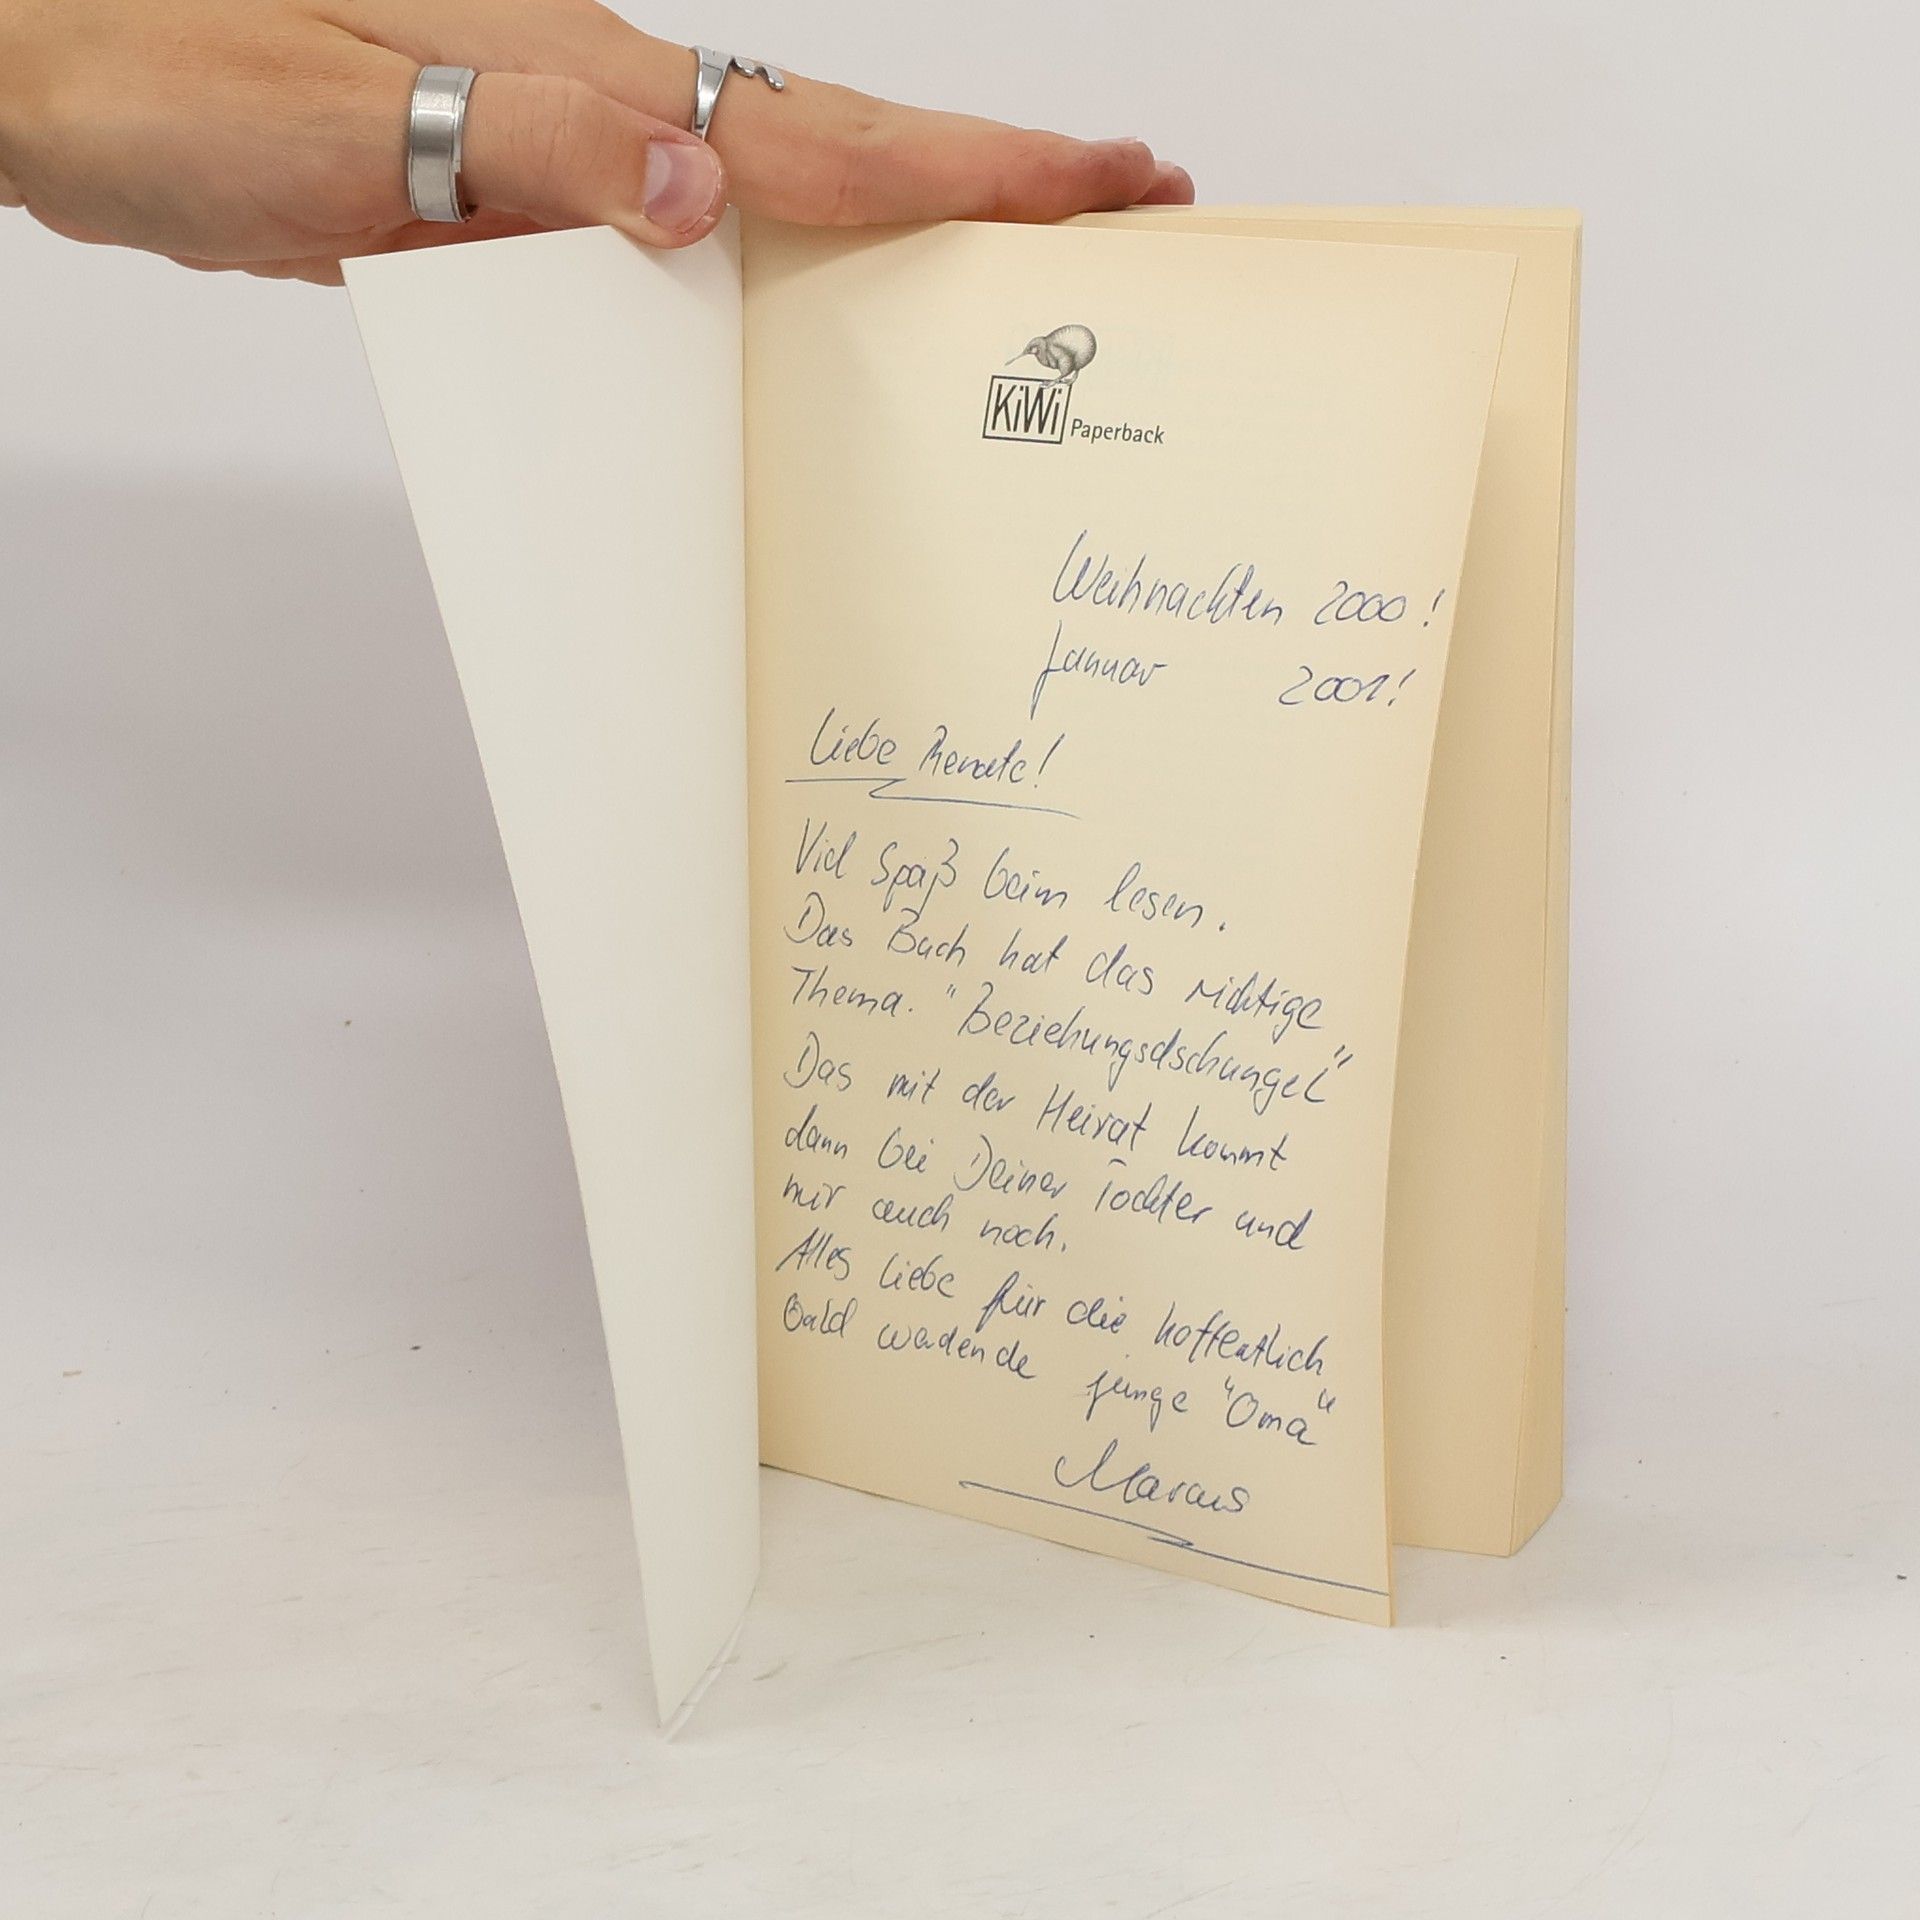 KiWi
Paperback
Weihnachten 2000!
Januar 2001!
Liebe Renate!
Viel Spaß beim lesen.
Das Buch hat das richtige
Thema. "Beziehungsdschungel"
Das mit der Heirat kommt
dann bei Deiner Tochter und
mir auch noch.
Alles liebe für die hoffentlich
bald werdende junge "Oma"
Marcus